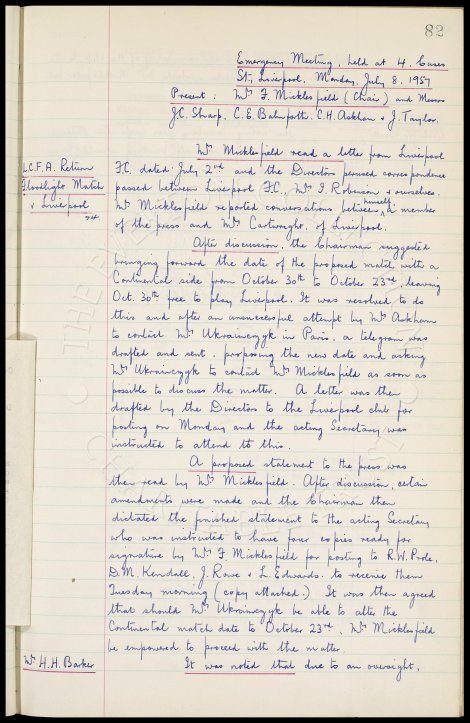 82
Emergency Meeting, held at 4, Cases
St, Liverpool, Monday, July 8, 1957
Present: Mr F. Micklesfield (Chair) and Messrs
J.C. Sharp, C.E. Balmforth, C.H. Askham & J. Taylor.
Mr Micklesfield read a letter from Liverpool
L.C.F.A. Return
Floodlight Match
v Liverpool
F.C. dated July 2nd and the Directors perused correspondence
passed between Liverpool F.C., Mr J. Robinson & ourselves.
Mr Micklesfield reported conversations between himself, a member
of the press and Mr Cartwright, of Liverpool.
After discussion, the Chairman suggested
bringing forward the date of the proposed match with a
Continental side from October 30th to October 23rd, leaving
Oct. 30th free to play Liverpool. It was resolved to do
this and after an unsuccessful attempt by Mr Askham
to contact Mr Ukrainczyk in Paris, a telegram was
drafted and sent, proposing the new date and asking
Mr Ukrainczyk to contact Mr Micklesfield as soon as
possible to discuss the matter. A letter was then
drafted by the Directors to the Liverpool club for
posting on Monday and the acting Secretary was
instructed to attend to this.
A proposed statement to the press was
then read by Mr Micklesfield. After discussion, certain
amendments were made and the Chairman then
dictated the finished statement to the acting Secretary
who was instructed to have four copies ready for
signature by Mr F. Micklesfield for posting to R.W. Prole,
D.M. Kendall, J. Rowe & L. Edwards, to receive them
Tuesday morning (copy attached.) It was then agreed
that should Mr Ukrainczyk be able to alter the
Continental match date to October 23rd, Mr Micklesfield
be empowered to proceed with the matter.
Mr H.H. Barker
It was noted that due to an oversight,